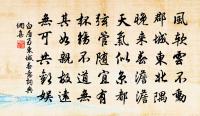 風軟雲不動
郡城東北隅
晚來春澹澹
天氣似京都
絃管隨宜有
杯觴不道無
其如親故遠
無可共歡娛
白居易東城春意詞典
網集